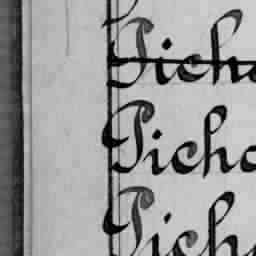 Picho
Picho
Pich